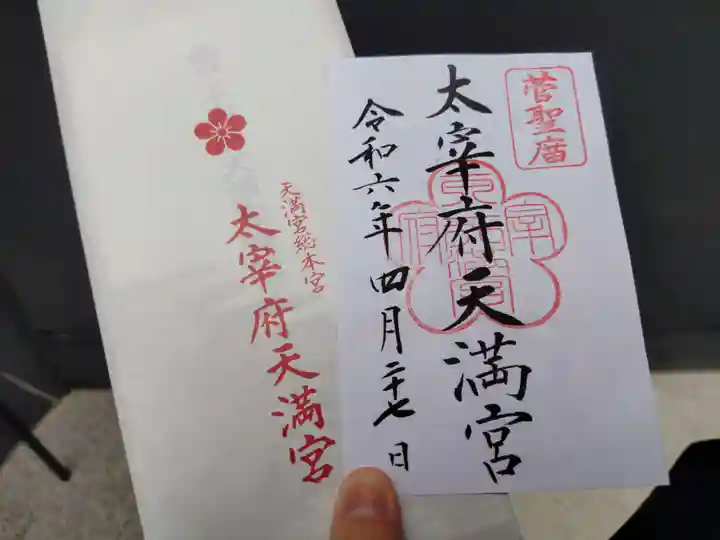 菅聖庿
太宰府天満宮
令和六年四月二十七日
天満宮総本宮
太宰府天満宮